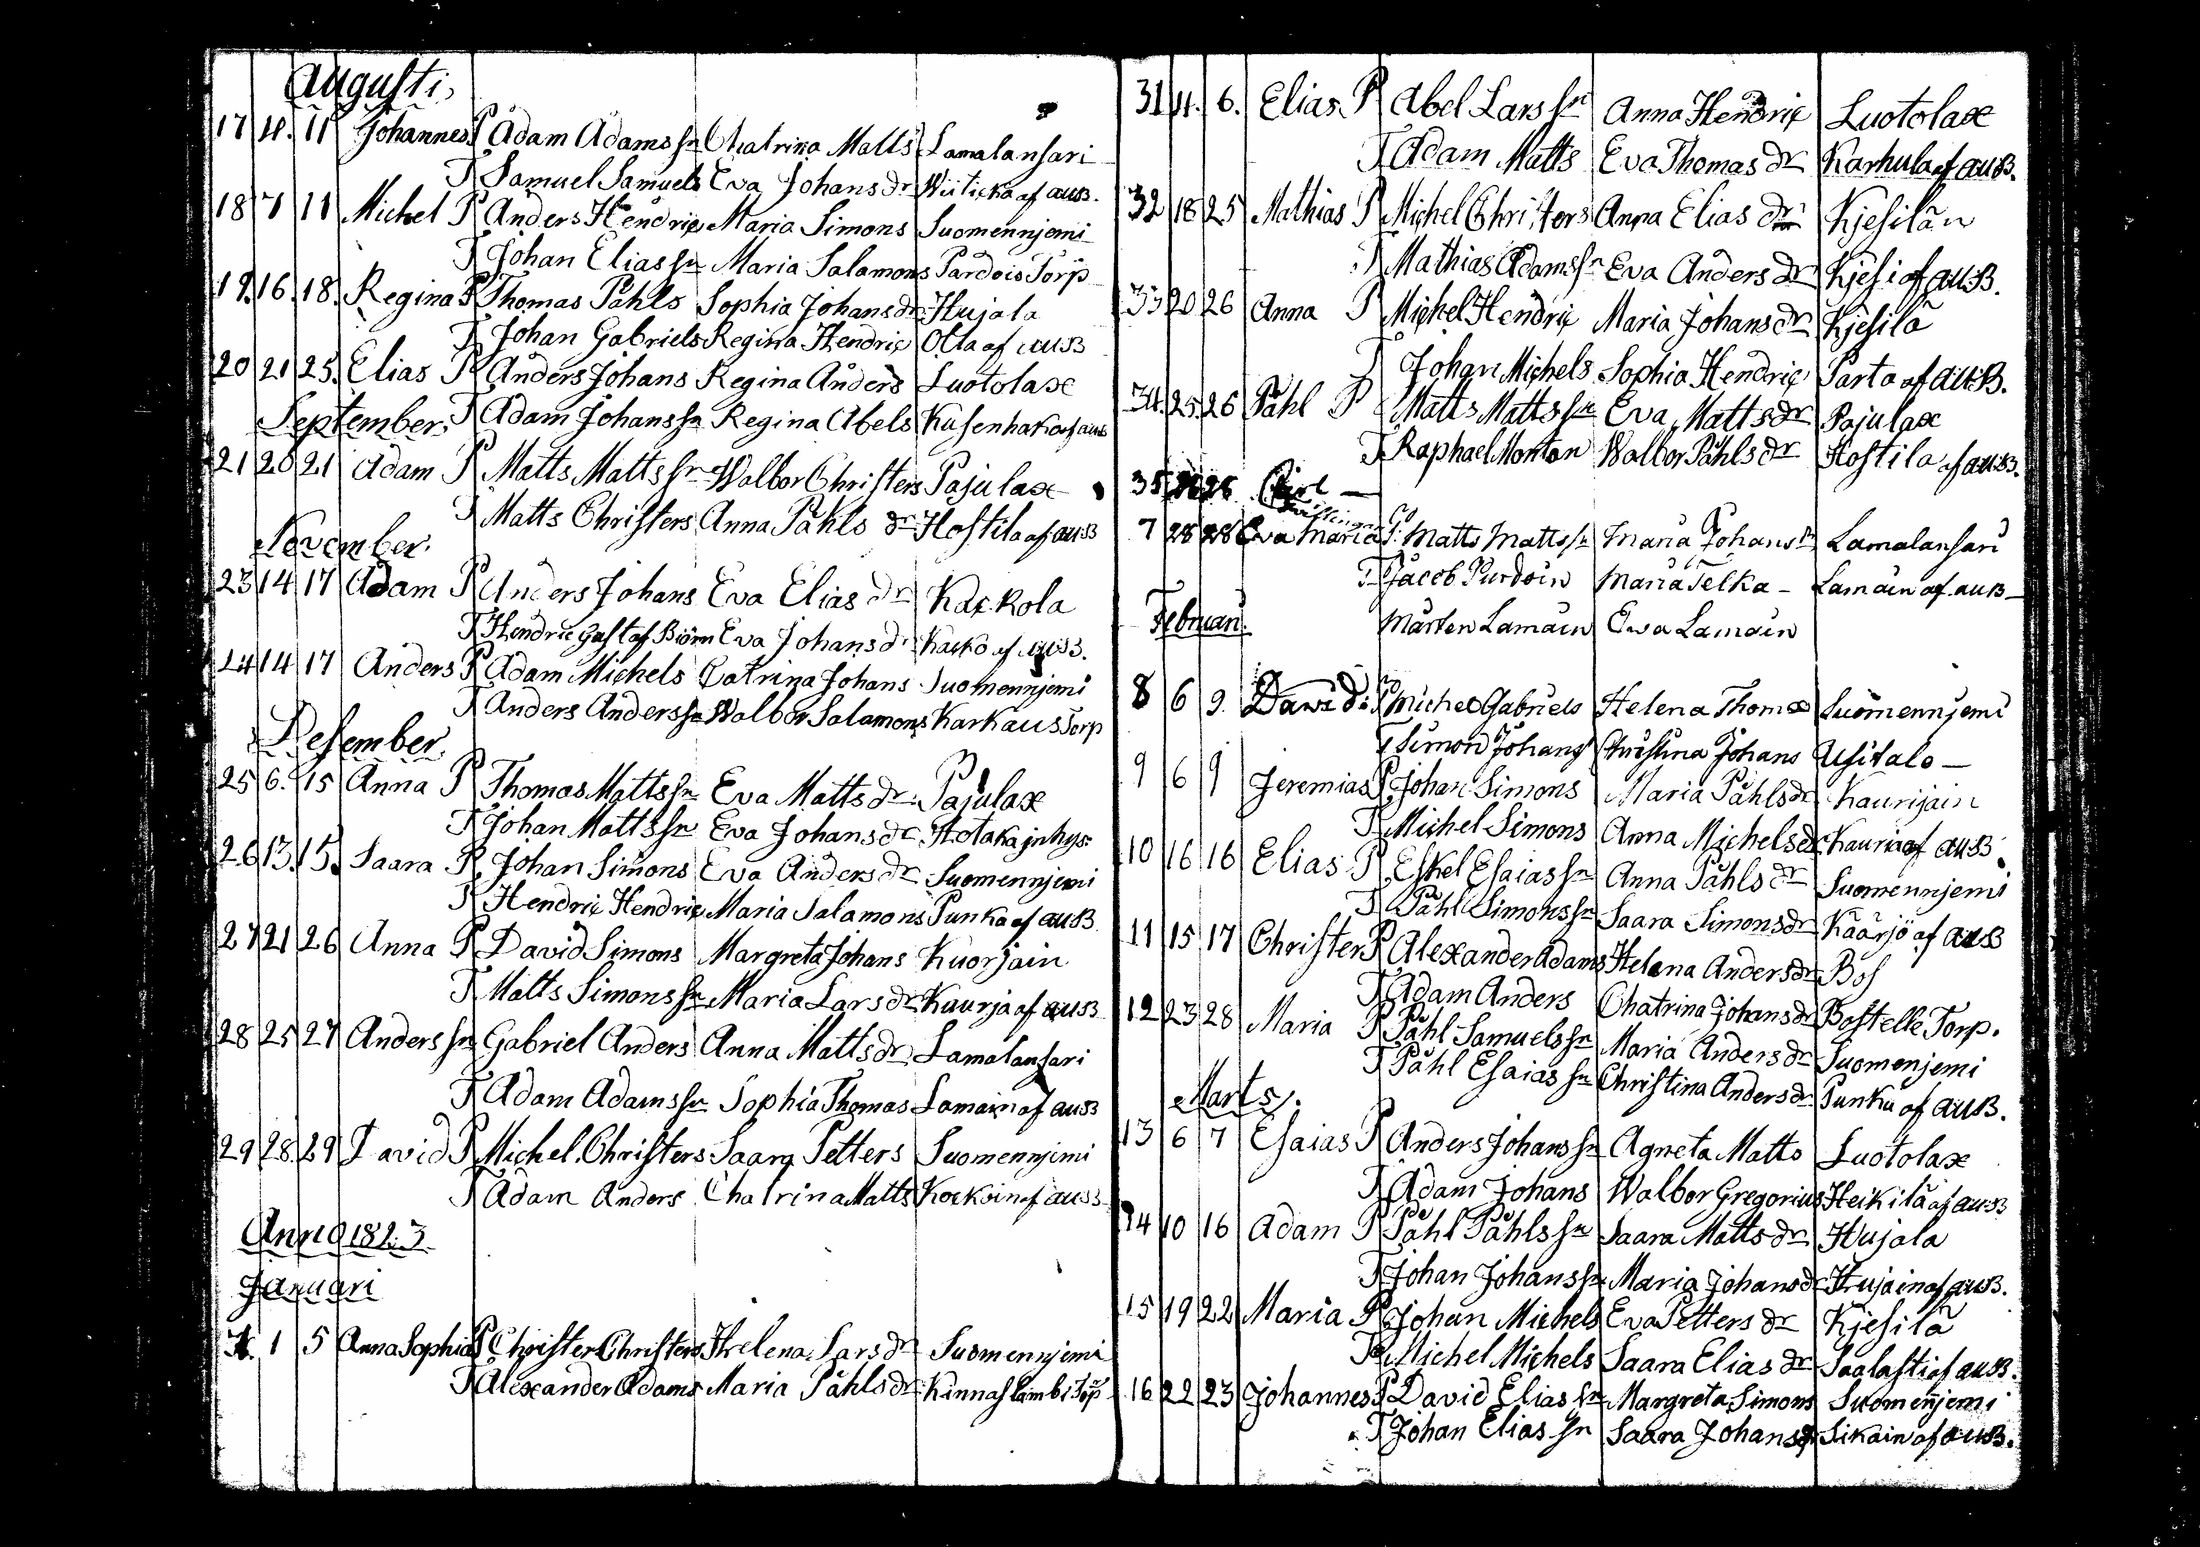 Augusti,
17 4. 11 Johannes P Adam Adams sn Chatrina Matts Lamalansari
T Samuel Samuels Eva Johans dr Wiiticka af aus.
18 7 11 Michel P Anders Hendric Maria Simons Suomennjemi
T Johan Elias sn Maria Salamons Pardois Torp
19. 16. 18. Regina P Thomas Påhls Sophia Johans dr Hujala
T Johan Gabriels Regina Hendric Otla af aus
20 21 25. Elias P Anders Johans Regina Anders Luotolax
September. T Adam Johans sn Regina Abels Kusenhako af aus
21 20 21 Adam P Matts Matts sn Walbor Christers Pajulax
T Matts Christers Anna Påhls dr Hostila af aus
November.
23 14 17 Adam P Anders Johans Eva Elias dr Kackola
T Hendric Gustaf Biörn Eva Johans dr Kacko af aus.
24 14 17 Anders P Adam Michels Catrina Johans Suomennjemi
T Anders Anders sn Walbor Salamons Karkaus Torp
Desember.
25 6. 15 Anna P Thomas Matts sn Eva Matts dr. Pajulax
T Johan Matts sn Eva Johans dr Hotaka inhys
26 13. 15. Saara P. Johan Simons Eva Anders dr Suomennjemi
T Hendric Hendric Maria Salamons Punka af aus
27 21 26 Anna P David Simons Margreta Johans Kuorjain
T Matts Simons sn Maria Lars dr Kuurja af aus
28 25 27 Anders sn Gabriel Anders Anna Matts dr Lamalansari
T Adam Adams sn Sophia Thomas Lamain af aus
29 28. 29 David P Michel Christers Saara Petters Suomennjemi
T Adam Anders Chatrina Matts Kocksin af aus
Anno 1823
Januari
1 5 Anna Sophia P Christer Christers Helena Lars dr Suomennjemi
T Alexander Adams Maria Påhls dr Kinnaslambi Torp
31 4. 6. Elias P Abel Lars sn Anna Hendric Luotolax
T Adam Matts Eva Thomas dr Karhula af aus.
32 18 25 Mathias P Michel Christers Anna Elias dr Kjesilän
T Mathias Adams sn Eva Anders dr Kjesi af aus.
33 20 26 Anna P Michel Hendric Maria Johans dr Kjesilä
T Johan Michels Sophia Hendric Parta af aus.
34. 25. 26 Påhl P Matts Matts sn Eva Matts dr Pajulax
T Raphael Monton Walbor Påhls dr Hostila af aus.
35
7 28 28 Eva Maria P. Matts Matts sn Maria Johans dr Lamalansari
T Jacob Purdoin Maria Telka - Lamäin af aus -
Februari. Mårten Lamäin Ewa Lamäin
8 6 9. Dawid: P Michel Gabriels Helena Thomæ Suomennjemi
T Simon Johans Christina Johans Usitalo -
9 6 9 Jeremias P Johan Simons Maria Påhls dr Kaurijain
T Michel Simons Anna Michels dr Kauria af aus.
10 16 16 Elias. P Eskel Esaias sn Anna Påhls dr Suomennjemi
T Påhl Simons sn Saara Simons dr Käärjö af aus
11 15 17 Christer P Alexander Adams Helena Anders dr Bos
T Adam Anders Chatrina Johans dr Bostelle Torp.
12 23 28 Maria P Påhl Samuels sn Maria Anders dr Suomenjemi
T Påhl Esaias sn Christina Anders dr Punka af aus.
Marts.
13 6 7 Esaias P Anders Johans sn Agneta Matts Luotolax
T Adam Johans Walbor Gregorius Heikilä af aus
14 10 16 Adam P Påhl Påhls sn Saara Matts dr Hujala
T Johan Johans sn Maria Johans dr Hujain af aus.
15 19 22 Maria P Johan Michels Eva Petters dr Kjesilä
T Michel Michels Saara Elias dr Saalasti af aus.
16 22 23 Johannes P David Elias sn Margreta Simons Suomennjemi
T Johan Elias sn Saara Johans dr Sikain af aus.